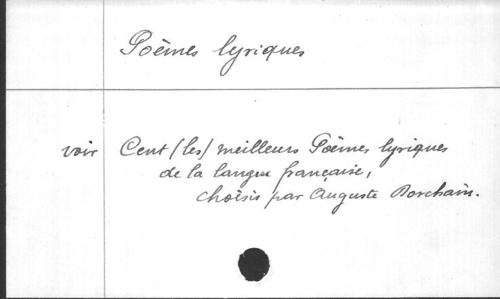 Poèmes lyriques
voir Cent (les) meilleurs Poèmes lyriques
de la langue française,
choisis par Auguste Dorchain.